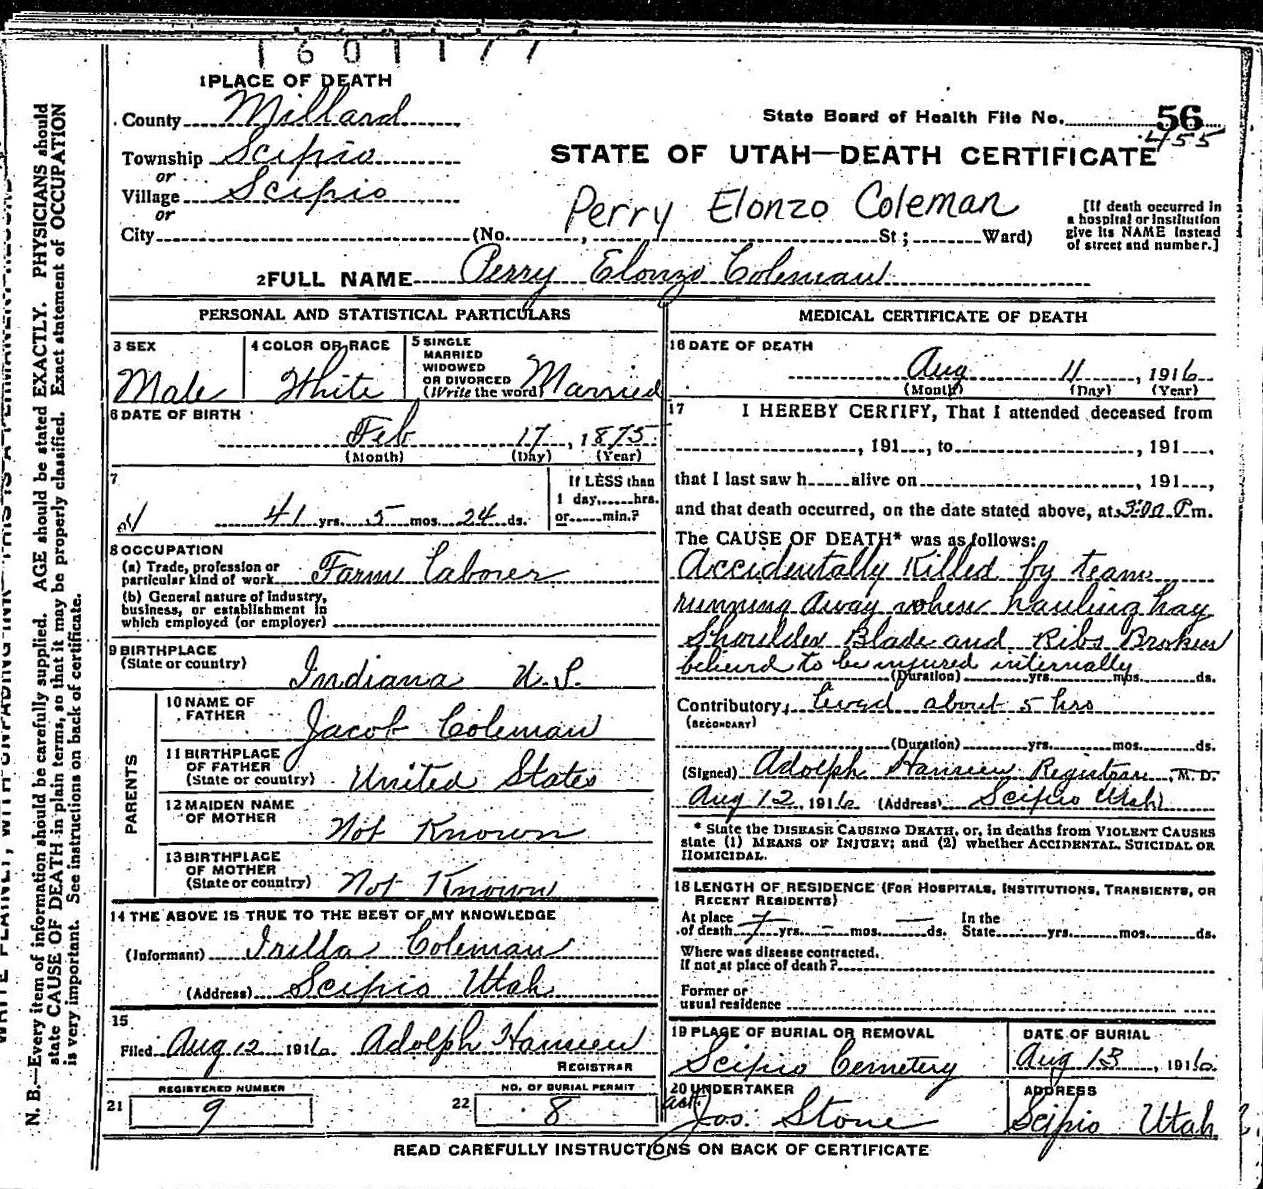 1 6 0 1 1 7 7
1 PLACE OF DEATH
County Millard
Township Scipio
or
Village Scipio
or
City (No. , St ; Ward)
State Board of Health File No. 56
455
STATE OF UTAH—DEATH CERTIFICATE
Perry Elonzo Coleman
[If death occurred in
a hospital or institution
give its NAME instead
of street and number.]
2 FULL NAME Perry Elonzo Coleman
PERSONAL AND STATISTICAL PARTICULARS
3 SEX
Male
4 COLOR OR RACE
White
5 SINGLE
MARRIED
WIDOWED
OR DIVORCED
(Write the word) Married
6 DATE OF BIRTH
Feb 17, 1875
(Month) (Day) (Year)
7
41 yrs. 5 mos. 24 ds.
If LESS than
1 day, hrs.
or min.?
8 OCCUPATION
(a) Trade, profession or
particular kind of work Farm Laborer
(b) General nature of industry,
business, or establishment in
which employed (or employer)
9 BIRTHPLACE
(State or country) Indiana U.S.
PARENTS
10 NAME OF
FATHER Jacob Coleman
11 BIRTHPLACE
OF FATHER
(State or country) United States
12 MAIDEN NAME
OF MOTHER Not Known
13 BIRTHPLACE
OF MOTHER
(State or country) Not Known
14 THE ABOVE IS TRUE TO THE BEST OF MY KNOWLEDGE
(Informant) Coleman
(Address) Scipio Utah
15
Filed Aug 12 1916 Adolph Hansen
REGISTRAR
REGISTERED NUMBER
21 9
NO. OF BURIAL PERMIT
22 8
MEDICAL CERTIFICATE OF DEATH
16 DATE OF DEATH
Aug 11, 1916
(Month) (Day) (Year)
17 I HEREBY CERTIFY, That I attended deceased from
, 191 , to , 191 ,
that I last saw h alive on , 191 ,
and that death occurred, on the date stated above, at P.m.
The CAUSE OF DEATH* was as follows:
Accidentally Killed by team
running away when hauling hay
Shoulder Blade and Ribs Broken
to be injured internally
(Duration) yrs. mos. ds.
Contributory lived about 5 hrs
(SECONDARY)
(Duration) yrs. mos. ds.
(Signed) Adolph Hansen Registrar, M.D.
Aug 12, 1916 (Address) Scipio Utah
* State the DISEASE CAUSING DEATH, or, in deaths from VIOLENT CAUSES
state (1) MEANS OF INJURY; and (2) whether ACCIDENTAL, SUICIDAL OR
HOMICIDAL.
18 LENGTH OF RESIDENCE (FOR HOSPITALS, INSTITUTIONS, TRANSIENTS, OR
RECENT RESIDENTS)
At place
of death 7 yrs. - mos. — ds. In the
State yrs. mos. ds.
Where was disease contracted,
if not at place of death?
Former or
usual residence
19 PLACE OF BURIAL OR REMOVAL
Scipio Cemetery
DATE OF BURIAL
Aug 13, 1916
20 UNDERTAKER
Jos. Stone
ADDRESS
Scipio Utah
READ CAREFULLY INSTRUCTIONS ON BACK OF CERTIFICATE
N. B.—Every item of information should be carefully supplied. AGE should be stated EXACTLY. PHYSICIANS should
state CAUSE OF DEATH in plain terms, so that it may be properly classified. Exact statement of OCCUPATION
is very important. See instructions on back of certificate.